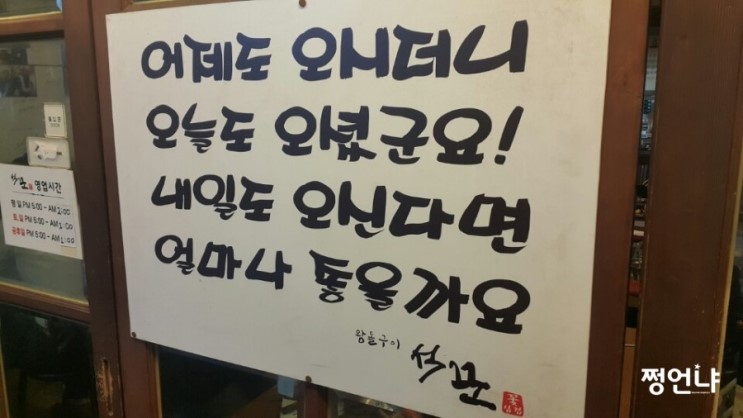 어제도 오시더니
오늘도 오셨군요!
내일도 오신다면
얼마나 좋을까요
왕돌구이
석군
영업시간
평일 PM 5:00 - AM 2:00
토,일 PM 5:00 - AM 2:00
공휴일 PM 5:00 - AM 1:00
쩡언냐